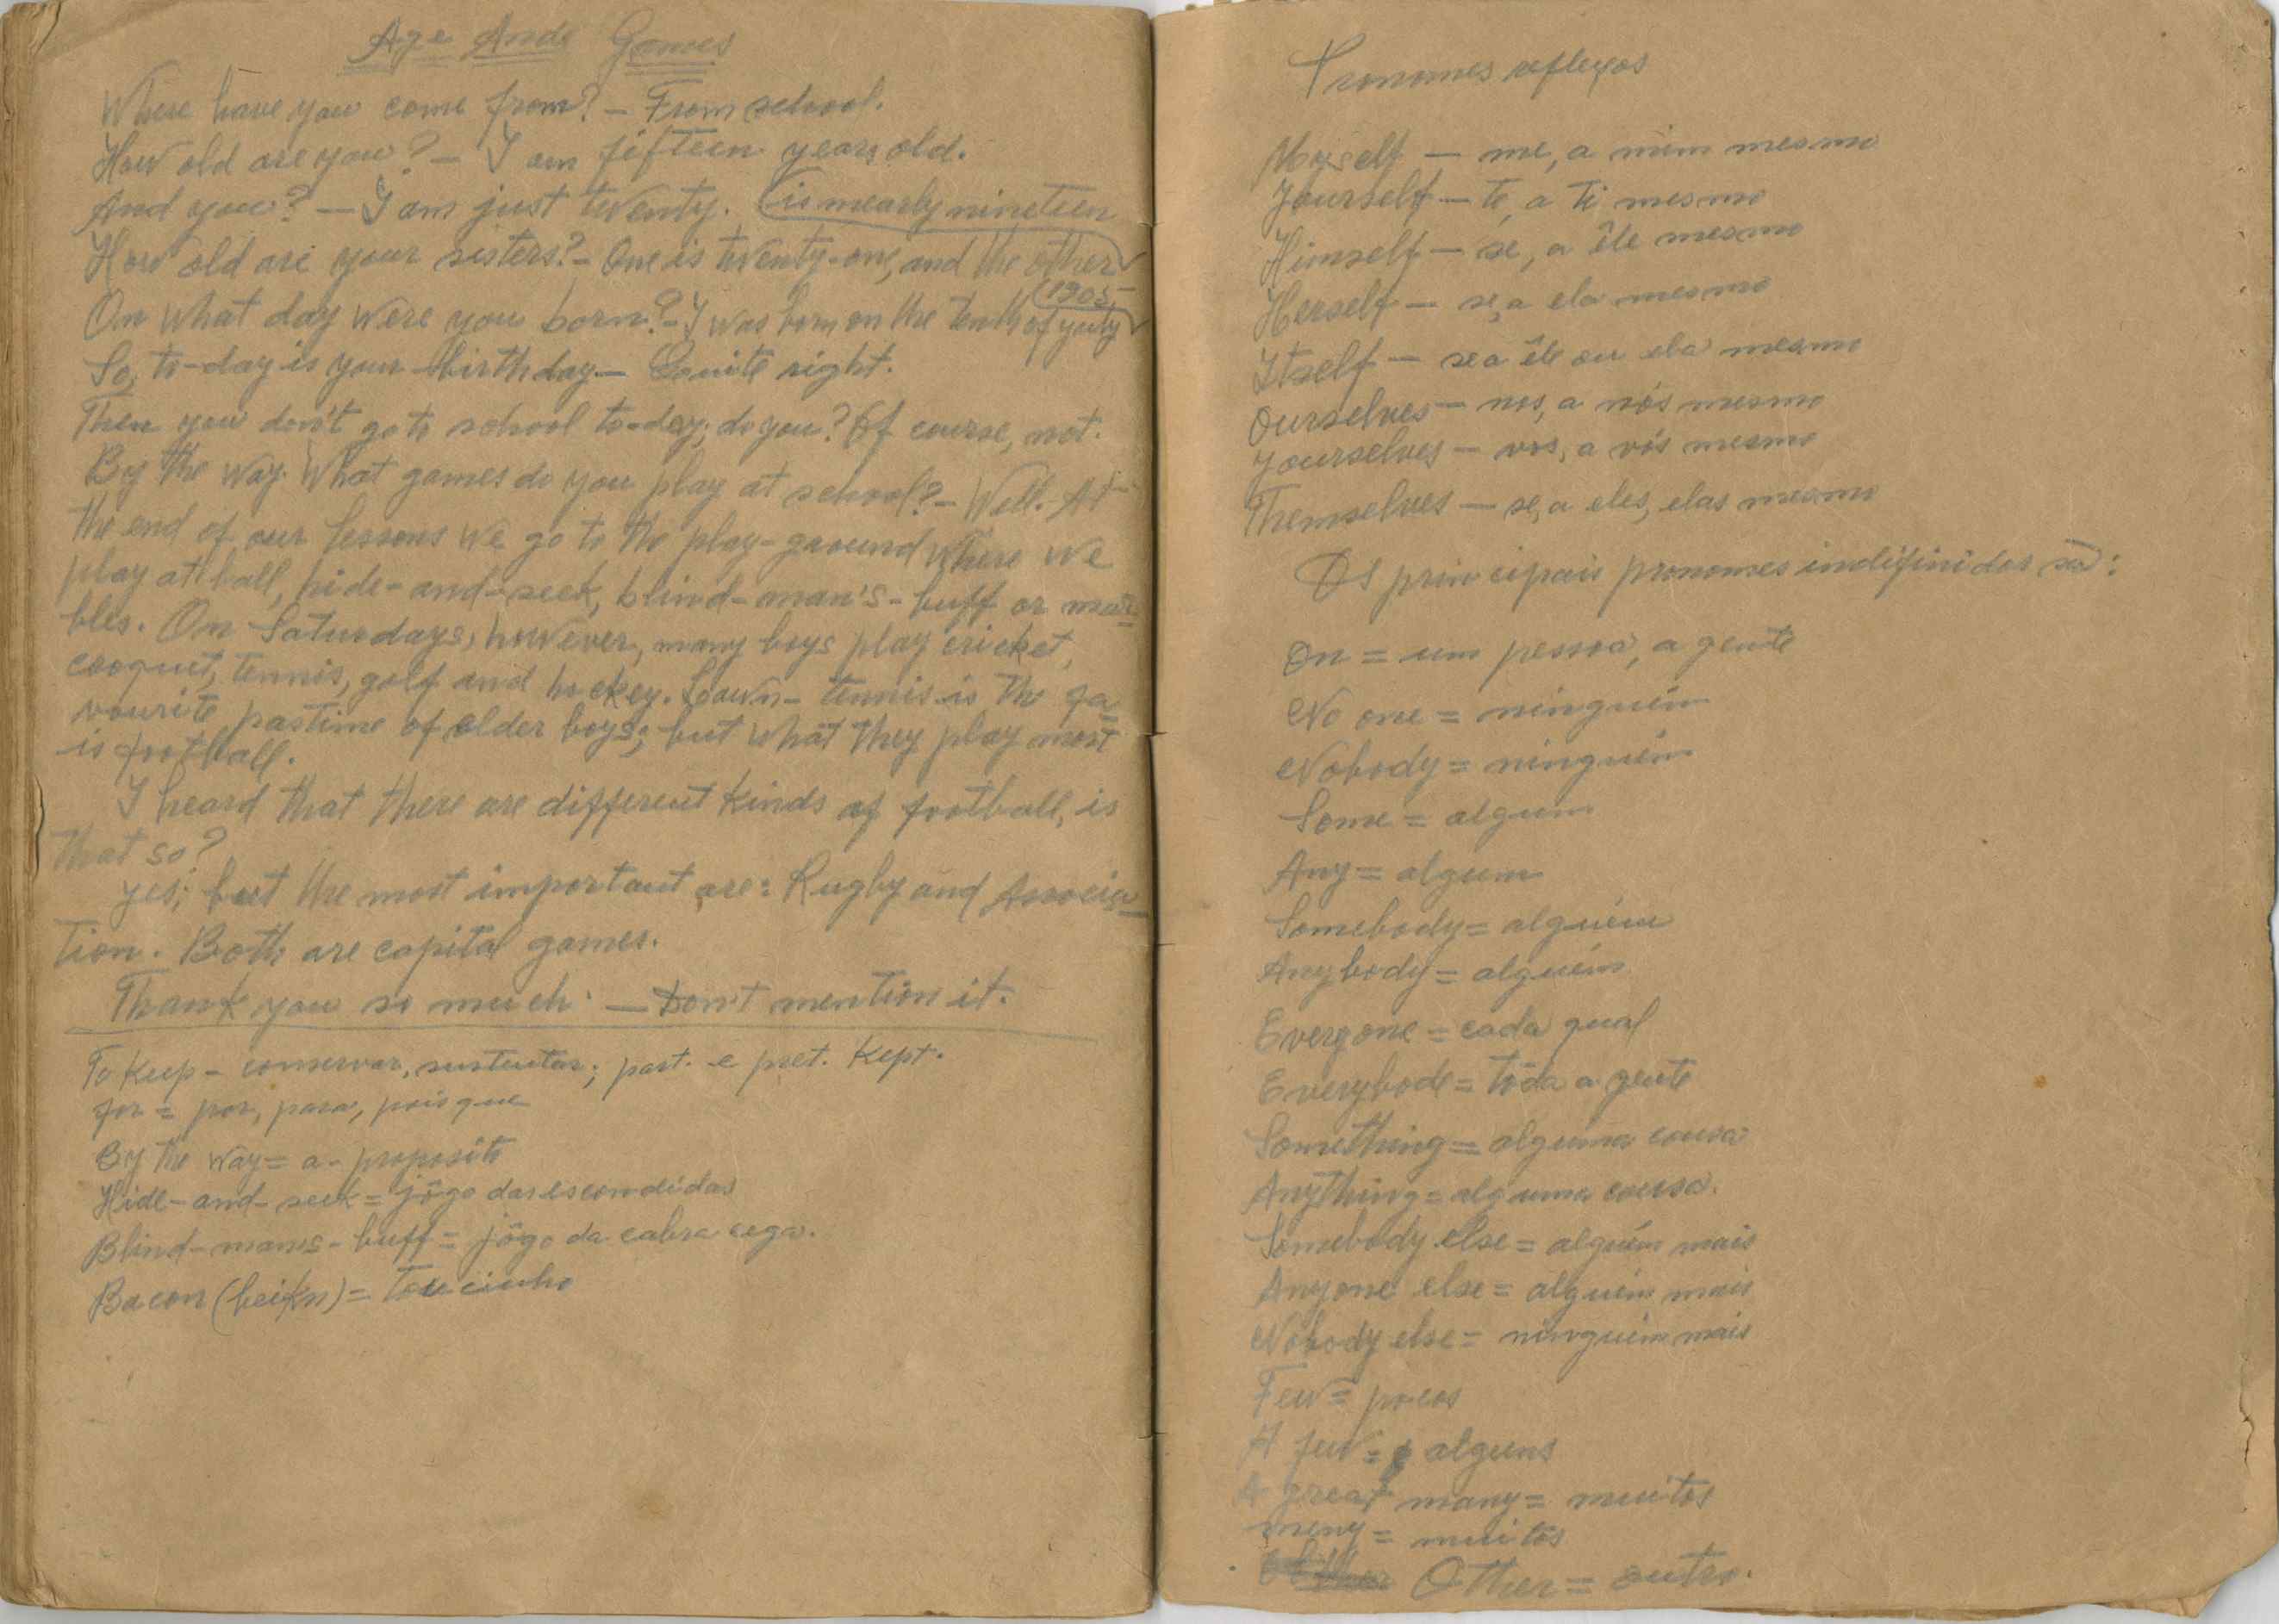 Age Ande Games
Where have you come from? — From school.
How old are you? — I am fifteen years old.
And you? — I am just twenty. (is nearly nineteen
How old are your sisters? - One is twenty-one, and the other
On what day were you born? - I was born on the tenth of yuly (1905-
So, to-day is your birthday — Quite right.
Then you don't go to school to-day; do you? Of course, not.
By the way. What games do you play at school? - Well. At
the end of our lessons we go to the play-ground where we
play at ball, hide-and-seek, blind-man's-buff or mar=
bles. On Saturdays, however, many boys play cricket,
cooquet, tennis, golf and hockey. Lawn-tennis is the fa=
vourite pastime of older boys; but what they play most
is football.
I heard that there are different kinds of football, is
that so?
yes; but the most important are: Rugby and Associa-
tion. Both are capital games.
Thank you so much. — Don't mention it.
To Keep - conservar, sustentar; part. e pret. Kept.
for = por, para, pois que
By the way = a-proposito
Hide-and-seek = jôgo das escondidas
Blind-mans-buff = jôgo da cabra cega.
Bacon (beikn) = toucinho
Pronomes reflexos
Myself — me, a mim mesmo
Yourself — te, a ti mesmo
Himself — se, a êle mesmo
Herself — se, a ela mesmo
Itself — se a êle ou ela mesmo
Ourselves — nos, a nós mesmo
Yourselves — vos, a vós mesmo
Themselves — se, a eles, elas mesmo
Os principais pronomes indifinidos são:
On = um pessoa, a gente
No one = ninguém
Nobody = ninguém
Some = algum
Any = algum
Somebody = alguém
Anybody = alguém
Everyone = cada qual
Everybode = tôda a gente
Something = alguma cousa
Anything = alguma cousa.
Somebody else = alguém mais
Anyone else = alguém mais
Nobody else = ninguém mais
Few = pocos
A few = alguns
A great many = muitos
meny = muitos
Other = outro.